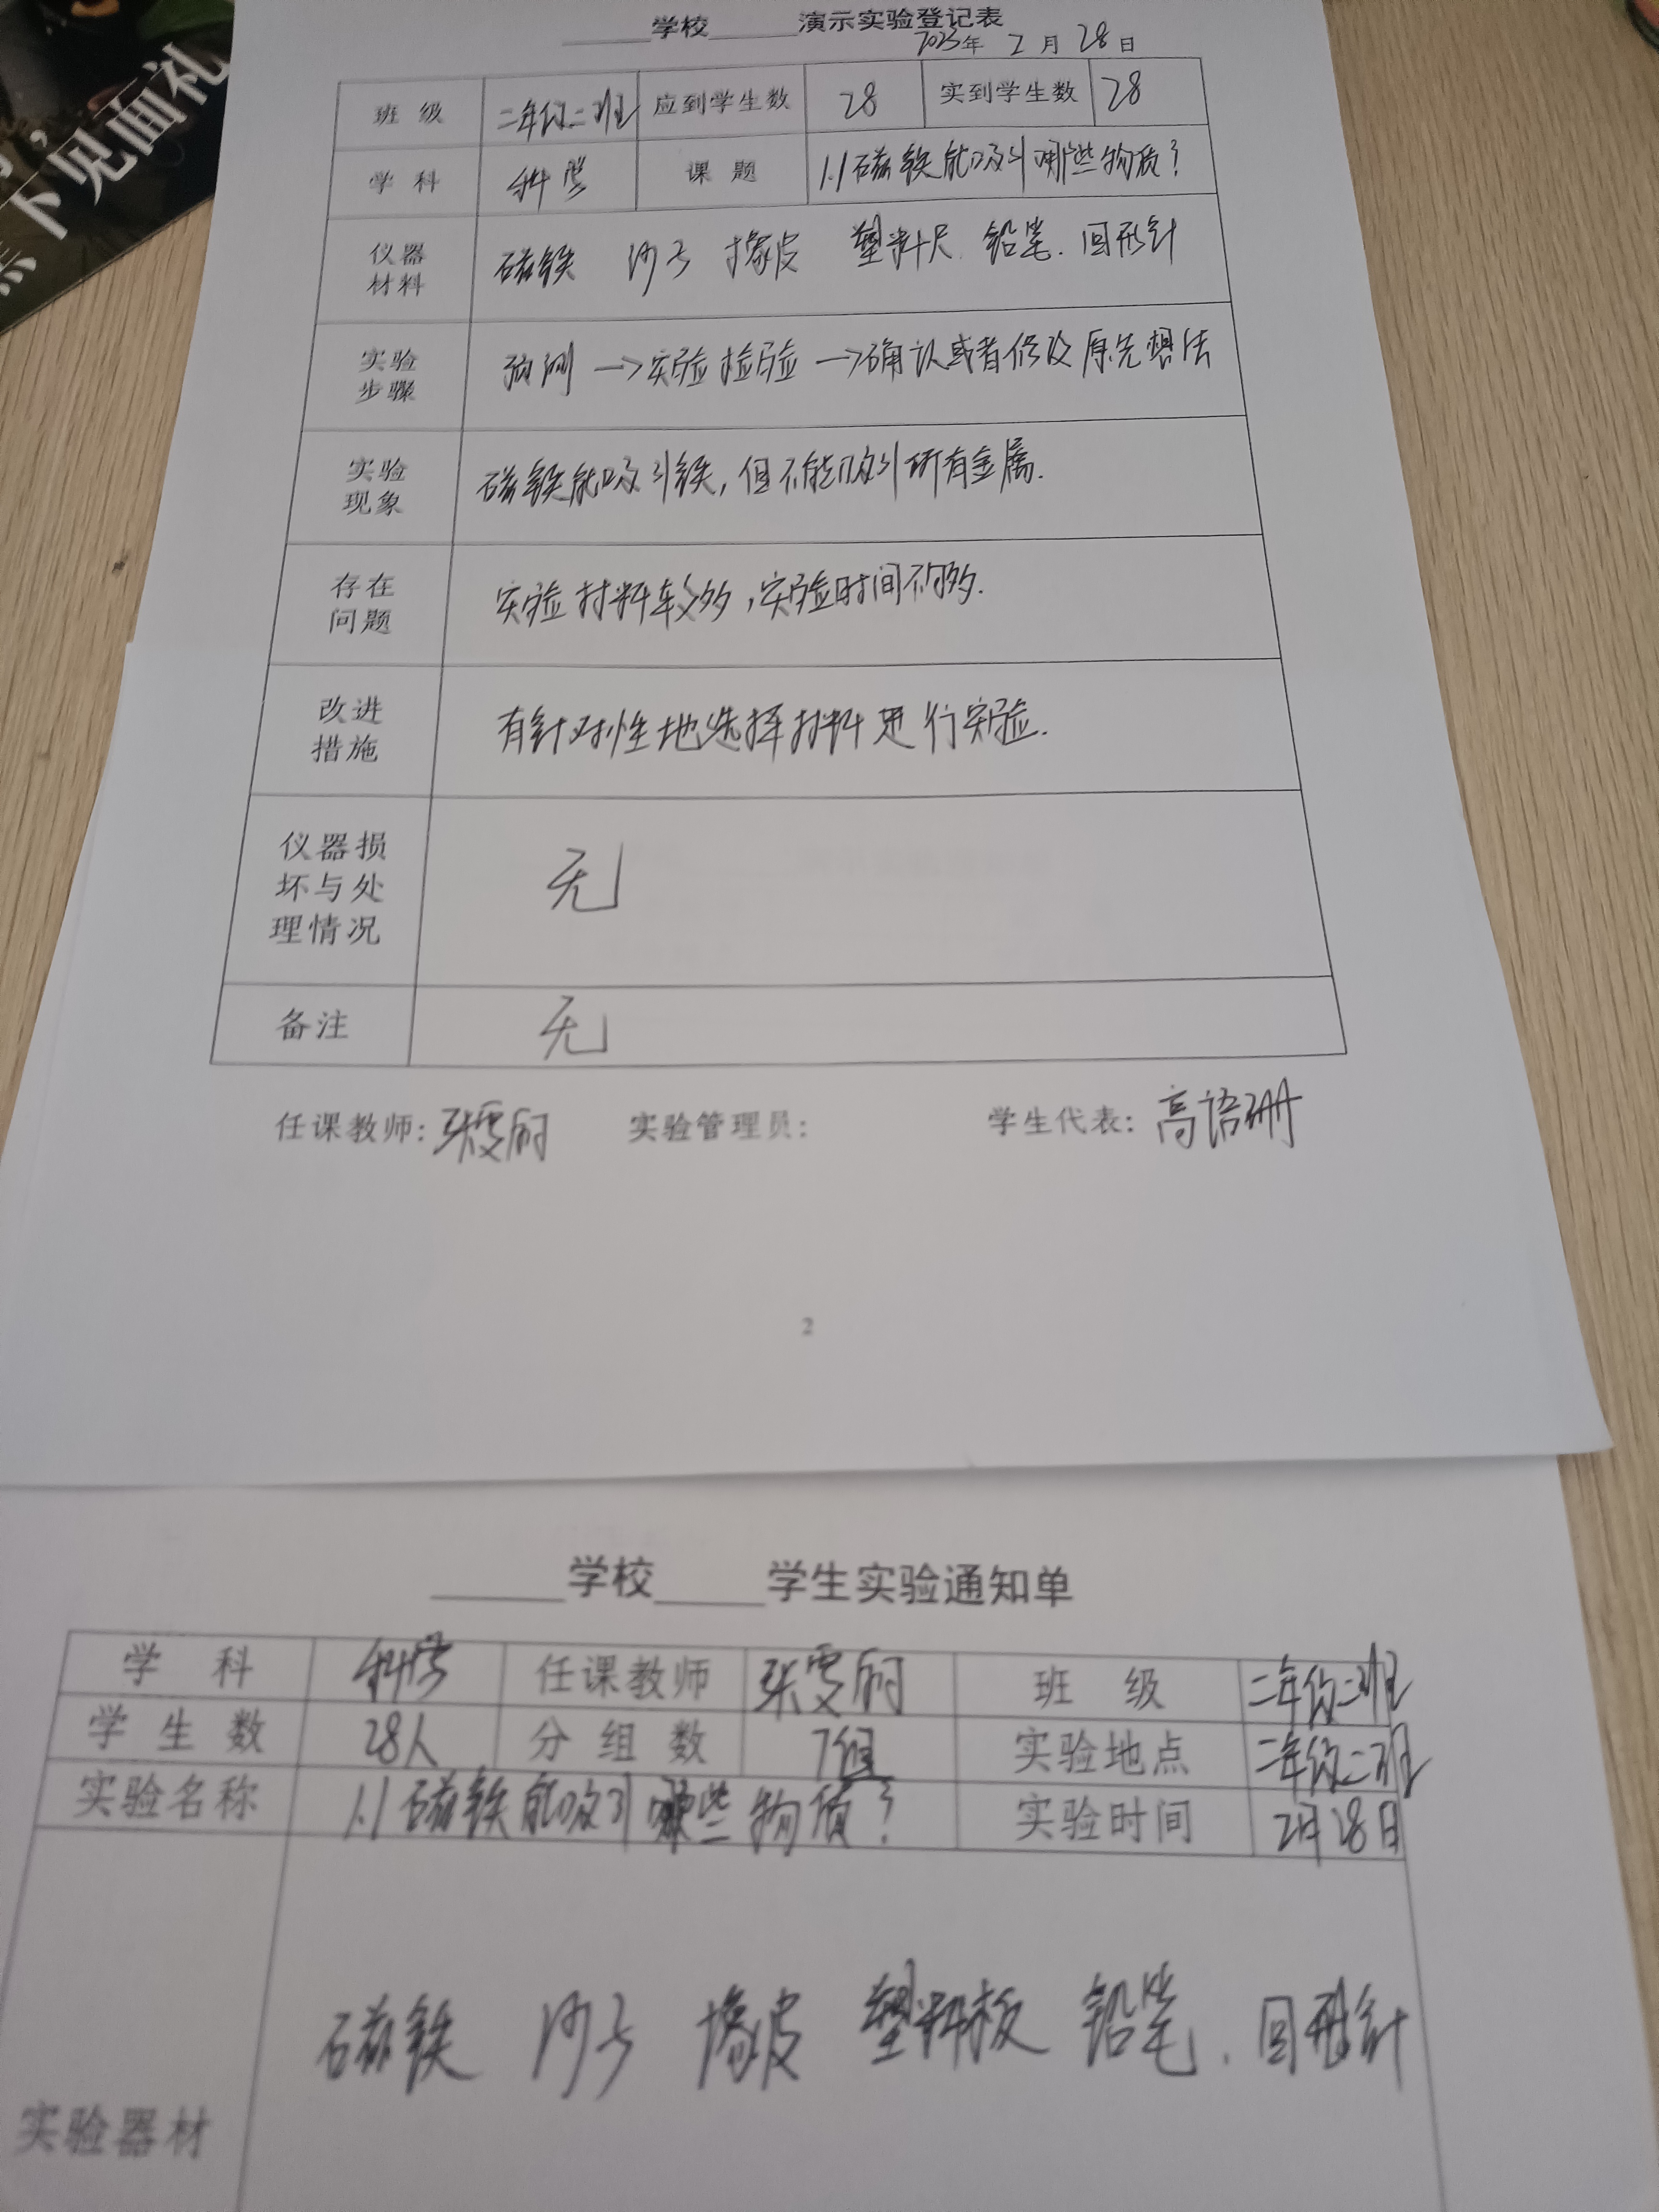 下见面礼
学校 演示实验登记表
2025年 2月 28日
班级 二年级二班 应到学生数 28 实到学生数 28
学科 科学 课题 1.1磁铁能吸引哪些物质?
仪器材料 磁铁 沙子 橡皮 塑料尺 铅笔. 回形针
实验步骤 预测→实验检验→确认或者修改原先想法
实验现象 磁铁能吸引铁,但不能吸引所有金属.
存在问题 实验材料较多,实验时间不够.
改进措施 有针对性地选择材料进行实验.
仪器损坏与处理情况 无
备注 无
任课教师: 张雯 实验管理员: 学生代表: 高语珊
2
学校 学生实验通知单
学科 科学 任课教师 张雯 班级 二年级二班
学生数 28人 分组数 7组 实验地点 二年级二班
实验名称 1.1磁铁能吸引哪些物质? 实验时间 2月28日
实验器材 磁铁 沙子 橡皮 塑料板 铅笔. 回形针